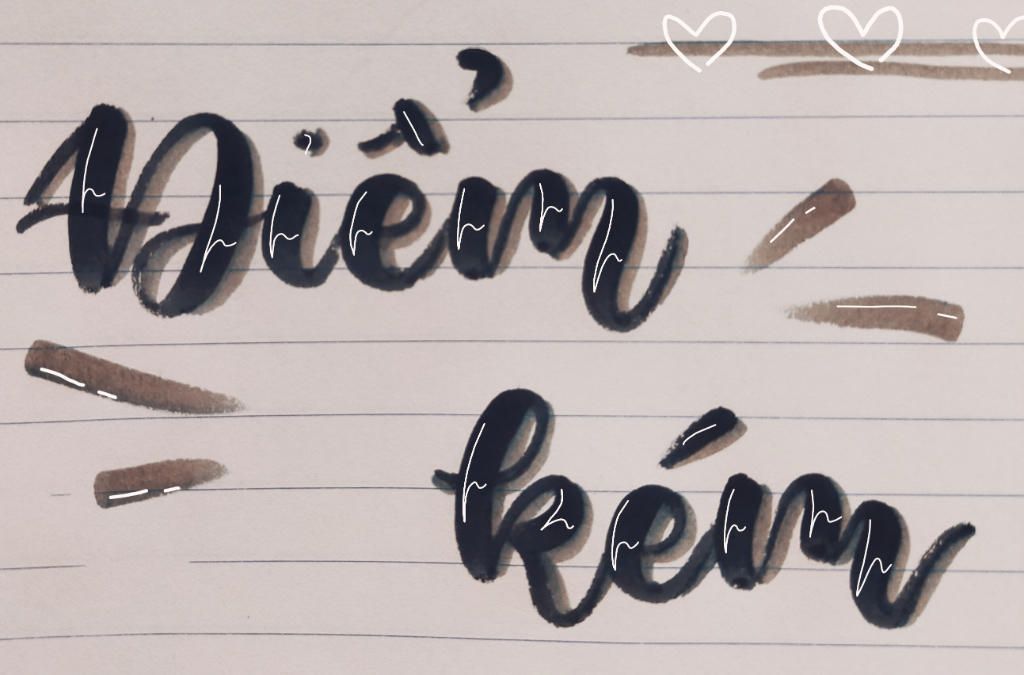 Điểm
kém